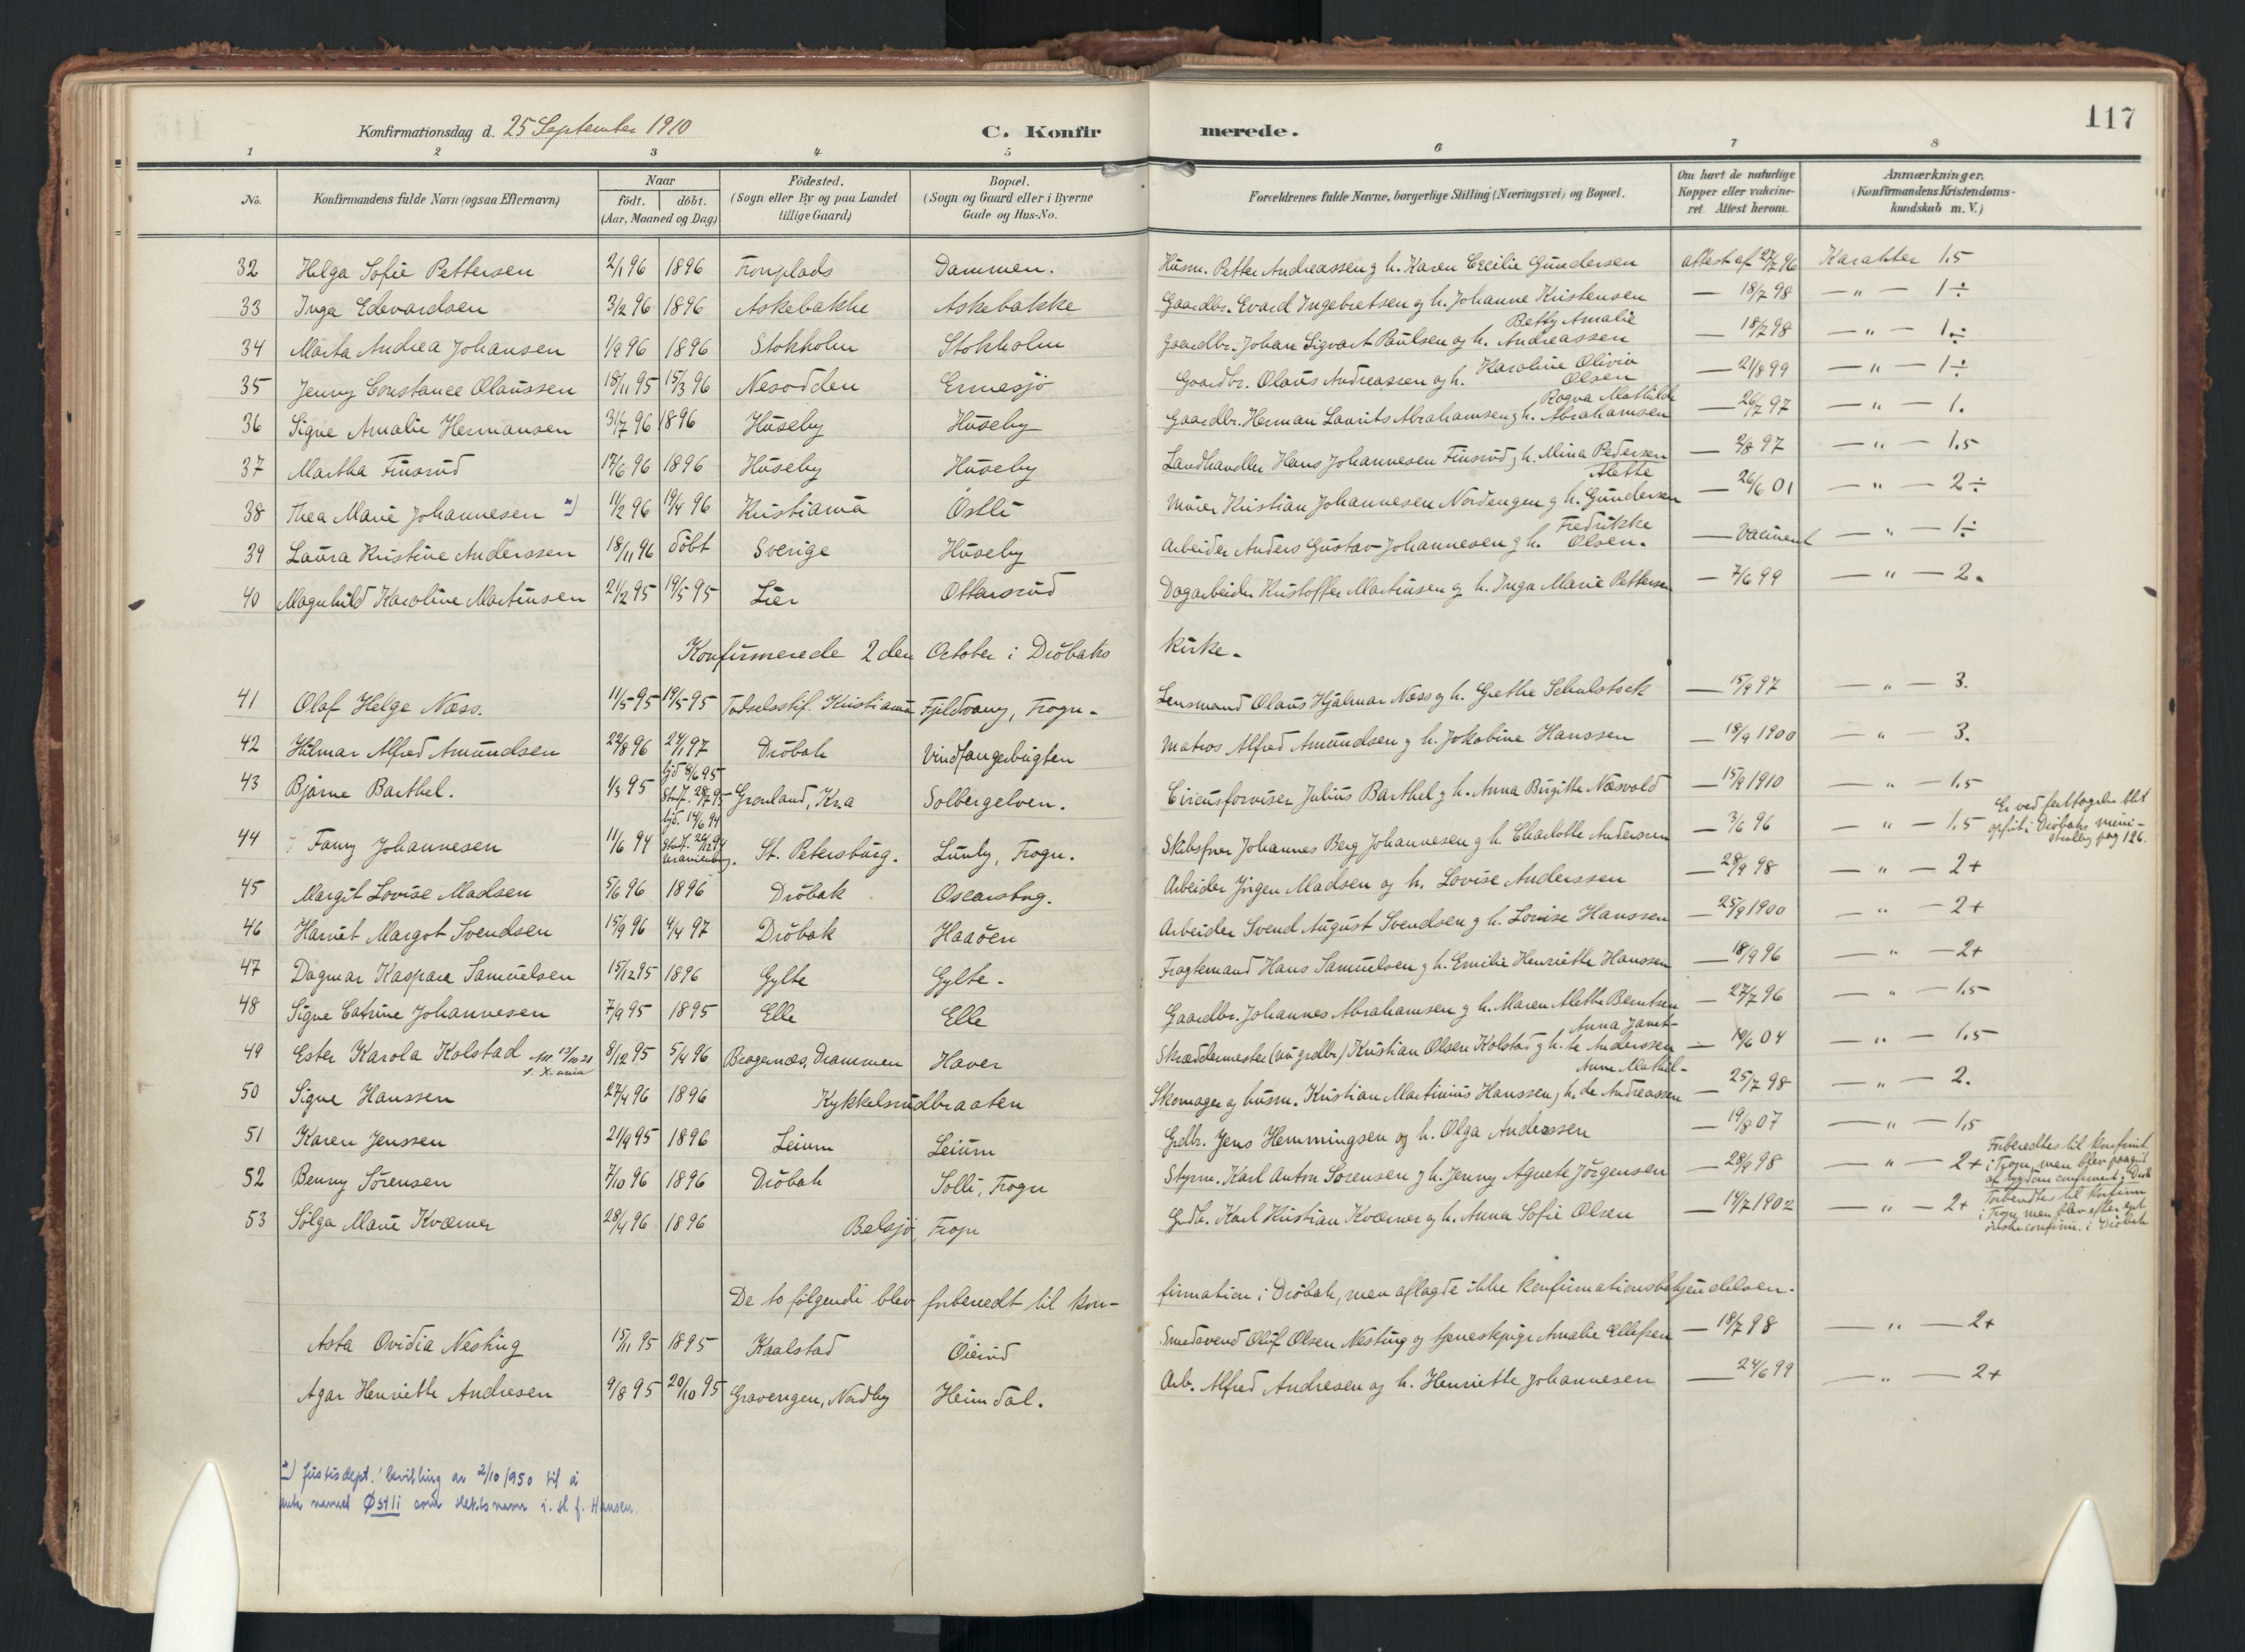 117
Konfirmationsdag d. 25 September 1910 C. Konfirmerede.
1 2 3 4 5 6 7 8
No. Konfirmandens fulde Navn (ogsaa Efternavn) Naar födt. döbt. (Aar, Maaned og Dag) Födested. (Sogn eller By og paa Landet tillige Gaard) Bopæl. (Sogn og Gaard eller i Byerne Gade og Hus-No. Forældrenes fulde Navne, borgerlige Stilling (Næringsvei) og Bopæl. Om havt de naturlige Kopper eller vakcineret Attest herom. Anmærkninger. (Konfirmandens Kristendomskundskab m. V.)
32 Helga Sofie Pettersen 2/1 96 1896 Fronplads Dammen. Husm. Petter Andreassen og h. Karen Cecilie Gundersen attest af 27/7 96 Karakter 1.5
33 Inga Edevardsen 3/2 96 1896 Askebakke Askebakke Gaardbr. Evard Ingebretsen og h. Johanne Kristensen — 18/7 98 — " — 1÷
34 Marta Andrea Johansen 1/9 96 1896 Stokholm Stokholm Gaardbr. Johan Sigvart Paulsen og h. Betty Amalie Andreassen — 18/7 98 — " — 1÷
35 Jenny Constance Olaussen 18/11 95 15/3 96 Nesodden Emmesjö Gaardbr. Olaus Andreassen og h. Karoline Olivia Olsen — 21/8 99 — " — 1÷
36 Signe Amalie Hermansen 31/7 96 1896 Huseby Huseby Gaardbr. Herman Laurits Abrahamsen og h. Ragna Mathilde Abrahamsen — 26/7 97 — " — 1.
37 Martha Finsrud 17/6 96 1896 Huseby Huseby Landhandler Hans Johannesen Finsrud og h. Mina Pedersen — 2/8 97 — " — 1.5
38 Thea Marie Johannesen *) 11/2 96 19/4 96 Kristiania Östli Murer Kristian Johannesen Nordengen og h. Alette Gundersen — 26/6 01 — " — 2÷
39 Laura Kristine Anderssen 18/11 96 döbt Sverige Huseby Arbeider Anders Gustav Johannesen og h. Fredrikke Olsen. — Vaccineret — " — 1÷
40 Magnhild Karoline Martinsen 21/2 95 19/5 95 Lier Ottarsrud Dagarbeider Kristoffer Martinsen og h. Inga Marie Pettersen — 7/6 99 — " — 2.
Konfirmerede 2den October i Dröbaks kirke.
41 Olaf Helge Næss. 11/5 95 19/5 95 Fødselsstif. Kristiania Fjeldvang, Frogn. Lensmand Olaus Hjalmar Næss og h. Grethe Schulstock — 15/9 97 — " — 3.
42 Hilmar Alfred Amundsen 22/8 96 24/1 97 Dröbak Vindfangerbugten Matros Alfred Amundsen og h. Jakobine Hanssen — 18/9 1900 — " 3.
43 Bjarne Barthel. 1/3 95 hjd 8/6 95 Stadf. 28/7 95 Grønland, Kra Solbergelven. Circusforviser Julius Barthel og h. Anna Birgitte Næsvold — 15/9 1910 — " — 1.5
44 Fanny Johannesen 11/6 94 hjd. 14/6 94 Stadf. 26/12 94 Uranienborg. St. Petersburg. Lunby, Frogn. Skibsfører Johannes Berg Johannesen og h. Charlotte Andersen — 3/6 96 — " — 1.5 Er ved feiltagelse blit opført i Dröbaks ministralbog pag 126.
45 Margit Lovise Madsen 5/6 96 1896 Dröbak Oscarsbrg. Arbeider Jörgen Madsen og h. Lovise Anderssen — 28/9 98 — " — 2+
46 Harriet Margot Svendsen 15/9 96 4/4 97 Dröbak Haaöen Arbeider Svend August Svendsen og h. Lovise Hanssen — 25/9 1900 — " — 2+
47 Dagmar Kaspara Samuelsen 15/12 95 1896 Gylte Gylte. Fragtemand Hans Samuelsen og h. Emilie Henriette Hanssen — 18/9 96 — " — 2+
48 Signe Catrine Johannesen 7/9 95 1895 Elle Elle Gaardbr. Johannes Abrahamsen og h. Maren Alethe Berntsen — 27/7 96 — " — 1.5
49 Ester Karola Kolstad 8/12 95 5/4 96 Bragernæs, Drammen Haver Skræddermester (nu grdbr.) Kristian Olsen Kolstad og h. Anna Janette Anderssen — 19/6 04 — " — 1.5
50 Signe Hanssen 27/4 96 1896 Kykkelsrudbraaten Skomager og husm. Kristian Martinius Hanssen og h. Anne Mathilde Andreassen — 25/7 98 — " — 2.
51 Karen Jenssen 21/9 95 1896 Leium Leium Grdbr. Jens Hemmingsen og h. Olga Anderssen — 19/8 07 — " — 1.5
52 Benny Sörensen 7/10 96 1896 Dröbak Solli, Frogn Styrm. Karl Anton Sorensen og h. Jenny Agnete Jörgensen — 28/9 98 — " — 2+ Forberedtes til konfirmt. i Frogn, men blev paagrd. af sygdom confirmert i Dröb.
53 Sølga Marie Kværner 28/4 96 1896 Belsjø, Frogn Grdb. Karl Kristian Kværner og h. Anna Sofie Olsen — 14/7 1902 — " — 2+ Forberedtes til konfirm. i Frogn, men blev efter eget önske confirm. i Dröbak
De to følgende blev forberedt til konfirmation i Dröbak, men aflagde ikke konfirmationsbekjendelsen.
Asta Ovidia Nesting 15/11 95 1895 Kaalstad Öierud Smedsvend Oluf Olsen Nesting og tjenestepige Amalie Ellefsen — 18/7 98 — " — 2+
Agar Henriette Andresen 9/8 95 20/10 95 Gravengen, Nordby Heimdal. Arb. Alfred Andresen og h. Henriette Johannesen — 24/6 99 — " — 2+
*) Justisdept. bevilling av 2/10 1950 til å
anta navnet Østli som slektsnavn i. st. f. Hansen.